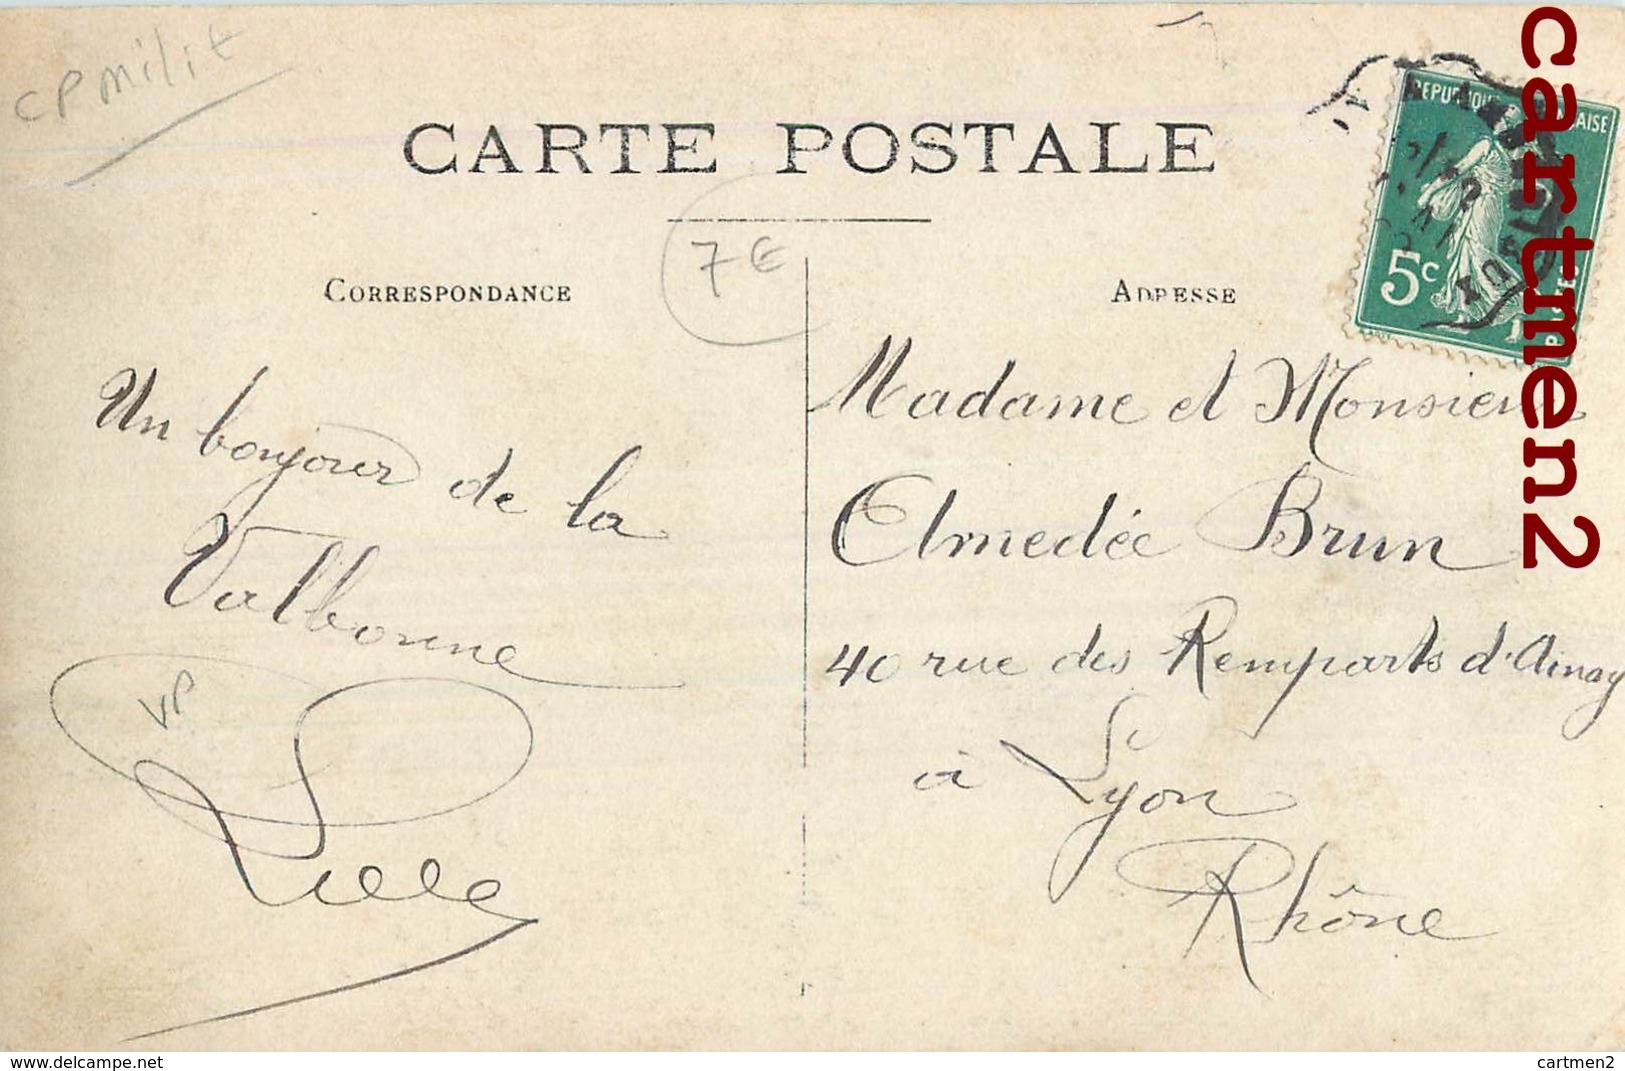 CP Milit
CARTE POSTALE
7€
CORRESPONDANCE
ADRESSE
REPUBLIQUE FRANÇAISE
5c
Un bonjour de la
Valbonne
VP
Madame et Monsieur
Elmedée Brun
40 rue des Remparts d'Ainay
à Lyon
Rhône
cartmen2
www.delcampe.net
cartmen2